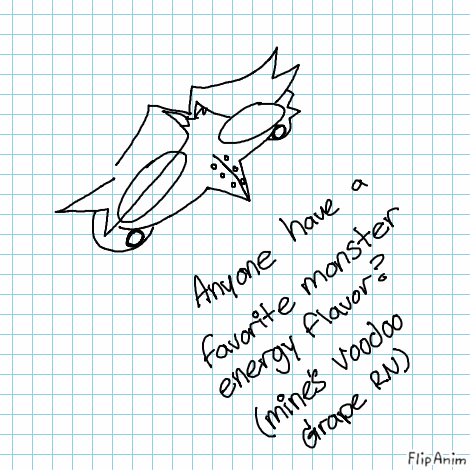 Anyone have a
favorite monster
energy flavor?
(mines voodoo
Grape RN)
FlipAnim